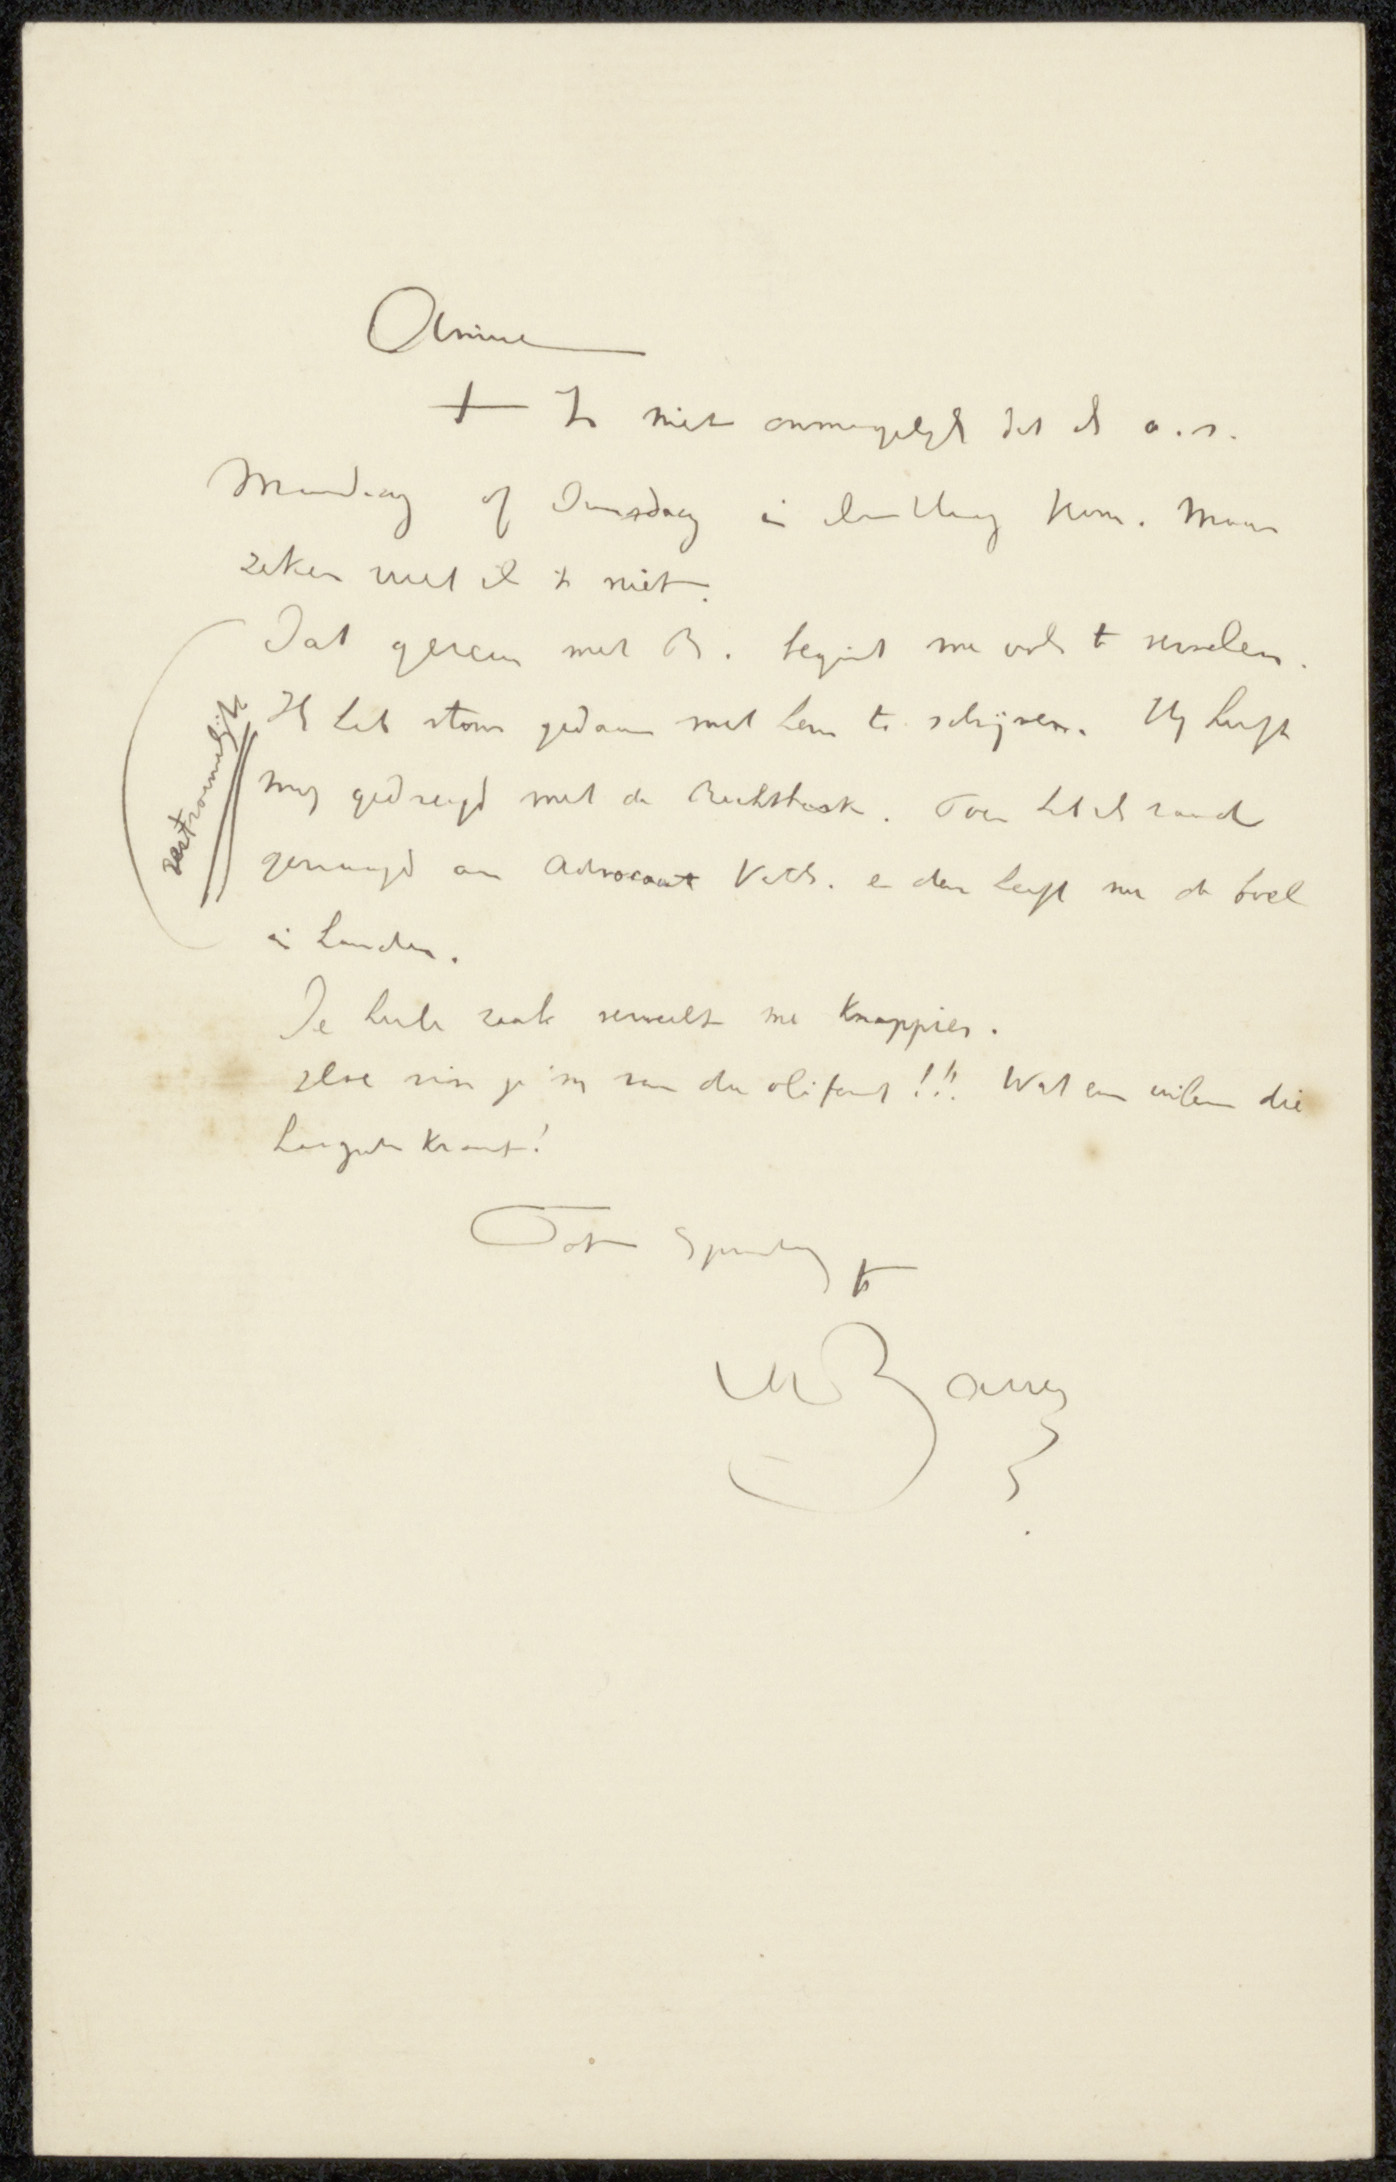 Amice
't Is niet onmogelijk dat ik a.s.
Maandag of Dinsdag in den Haag kom. Maar
zeker weet ik 't niet.
Dat gezeur met B. begint me ook te vervelen.
Ik heb stom gedaan met hem te schrijven. Hij heeft
mij gedreigd met de Rechtbank. Toen heb ik raad
gevraagd aan Advocaat en den heeft nu de boel
in handen.
vertrouwelijk
De heele zaak verveelt me knappies.
Hoe vin je 'm van den olifant!!! Wat een die
Haagsche Krant!
Tot Spoedig
MBauer